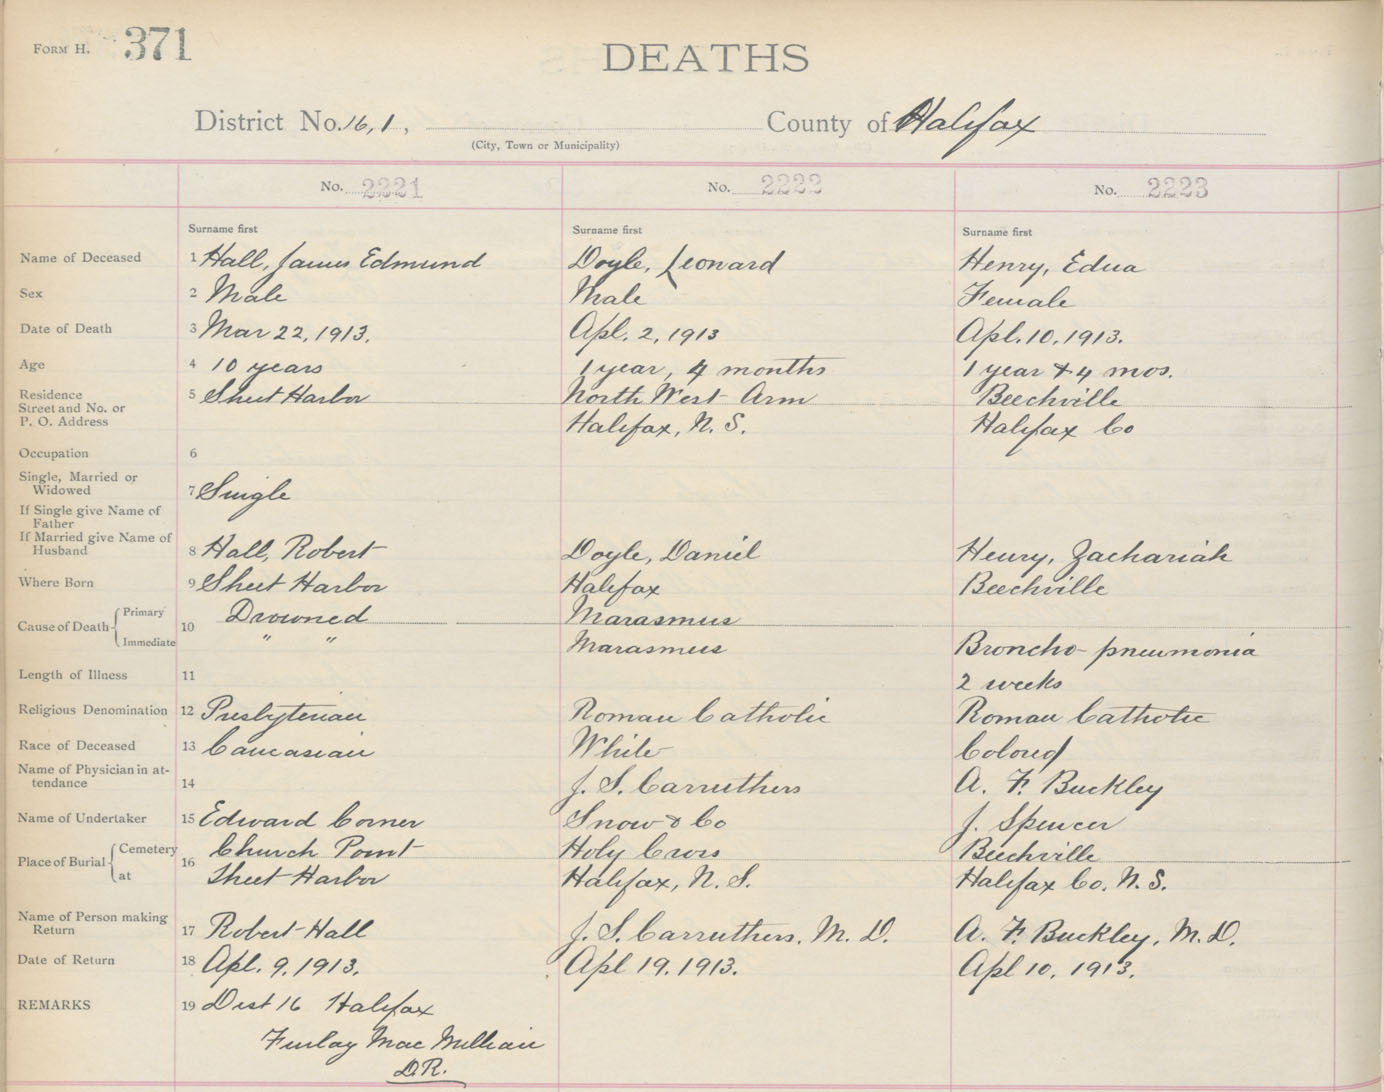 FORM H. 371
DEATHS
District No. 16,1, County of Halifax
(City, Town or Municipality)
No. 2221 No. 2222 No. 2223
Surname first Surname first Surname first
Name of Deceased 1 Hall, James Edmund Doyle, Leonard Henry, Edna
Sex 2 Male Male Female
Date of Death 3 Mar 22, 1913. Apl. 2, 1913 Apl. 10. 1913.
Age 4 10 years 1 year, 4 months 1 year & 4 mos.
Residence 5 Sheet Harbor North West Arm Beechville
Street and No. or
P. O. Address Halifax, N. S. Halifax Co
Occupation 6
Single, Married or
Widowed 7 Single
If Single give Name of
Father
If Married give Name of
Husband 8 Hall, Robert Doyle, Daniel Henry, Zachariah
Where Born 9 Sheet Harbor Halifax Beechville
Cause of Death Primary 10 Drowned Marasmus
Immediate " " Marasmus Broncho-pneumonia
Length of Illness 11 2 weeks
Religious Denomination 12 Presbyterian Roman Catholic Roman Catholic
Race of Deceased 13 Caucasian White Colored
Name of Physician in at-
tendance 14 J. S. Carruthers A. F. Buckley
Name of Undertaker 15 Edward Corner Snow & Co J. Spencer
Place of Burial Cemetery 16 Church Point Holy Cross Beechville
at Sheet Harbor Halifax, N. S. Halifax Co. N. S.
Name of Person making
Return 17 Robert Hall J. S. Carruthers, M. D. A. F. Buckley, M. D.
Date of Return 18 Apl. 9. 1913. Apl 19. 1913. Apl 10, 1913.
REMARKS 19 Dist 16 Halifax
Finlay Mac Millian
D.R.